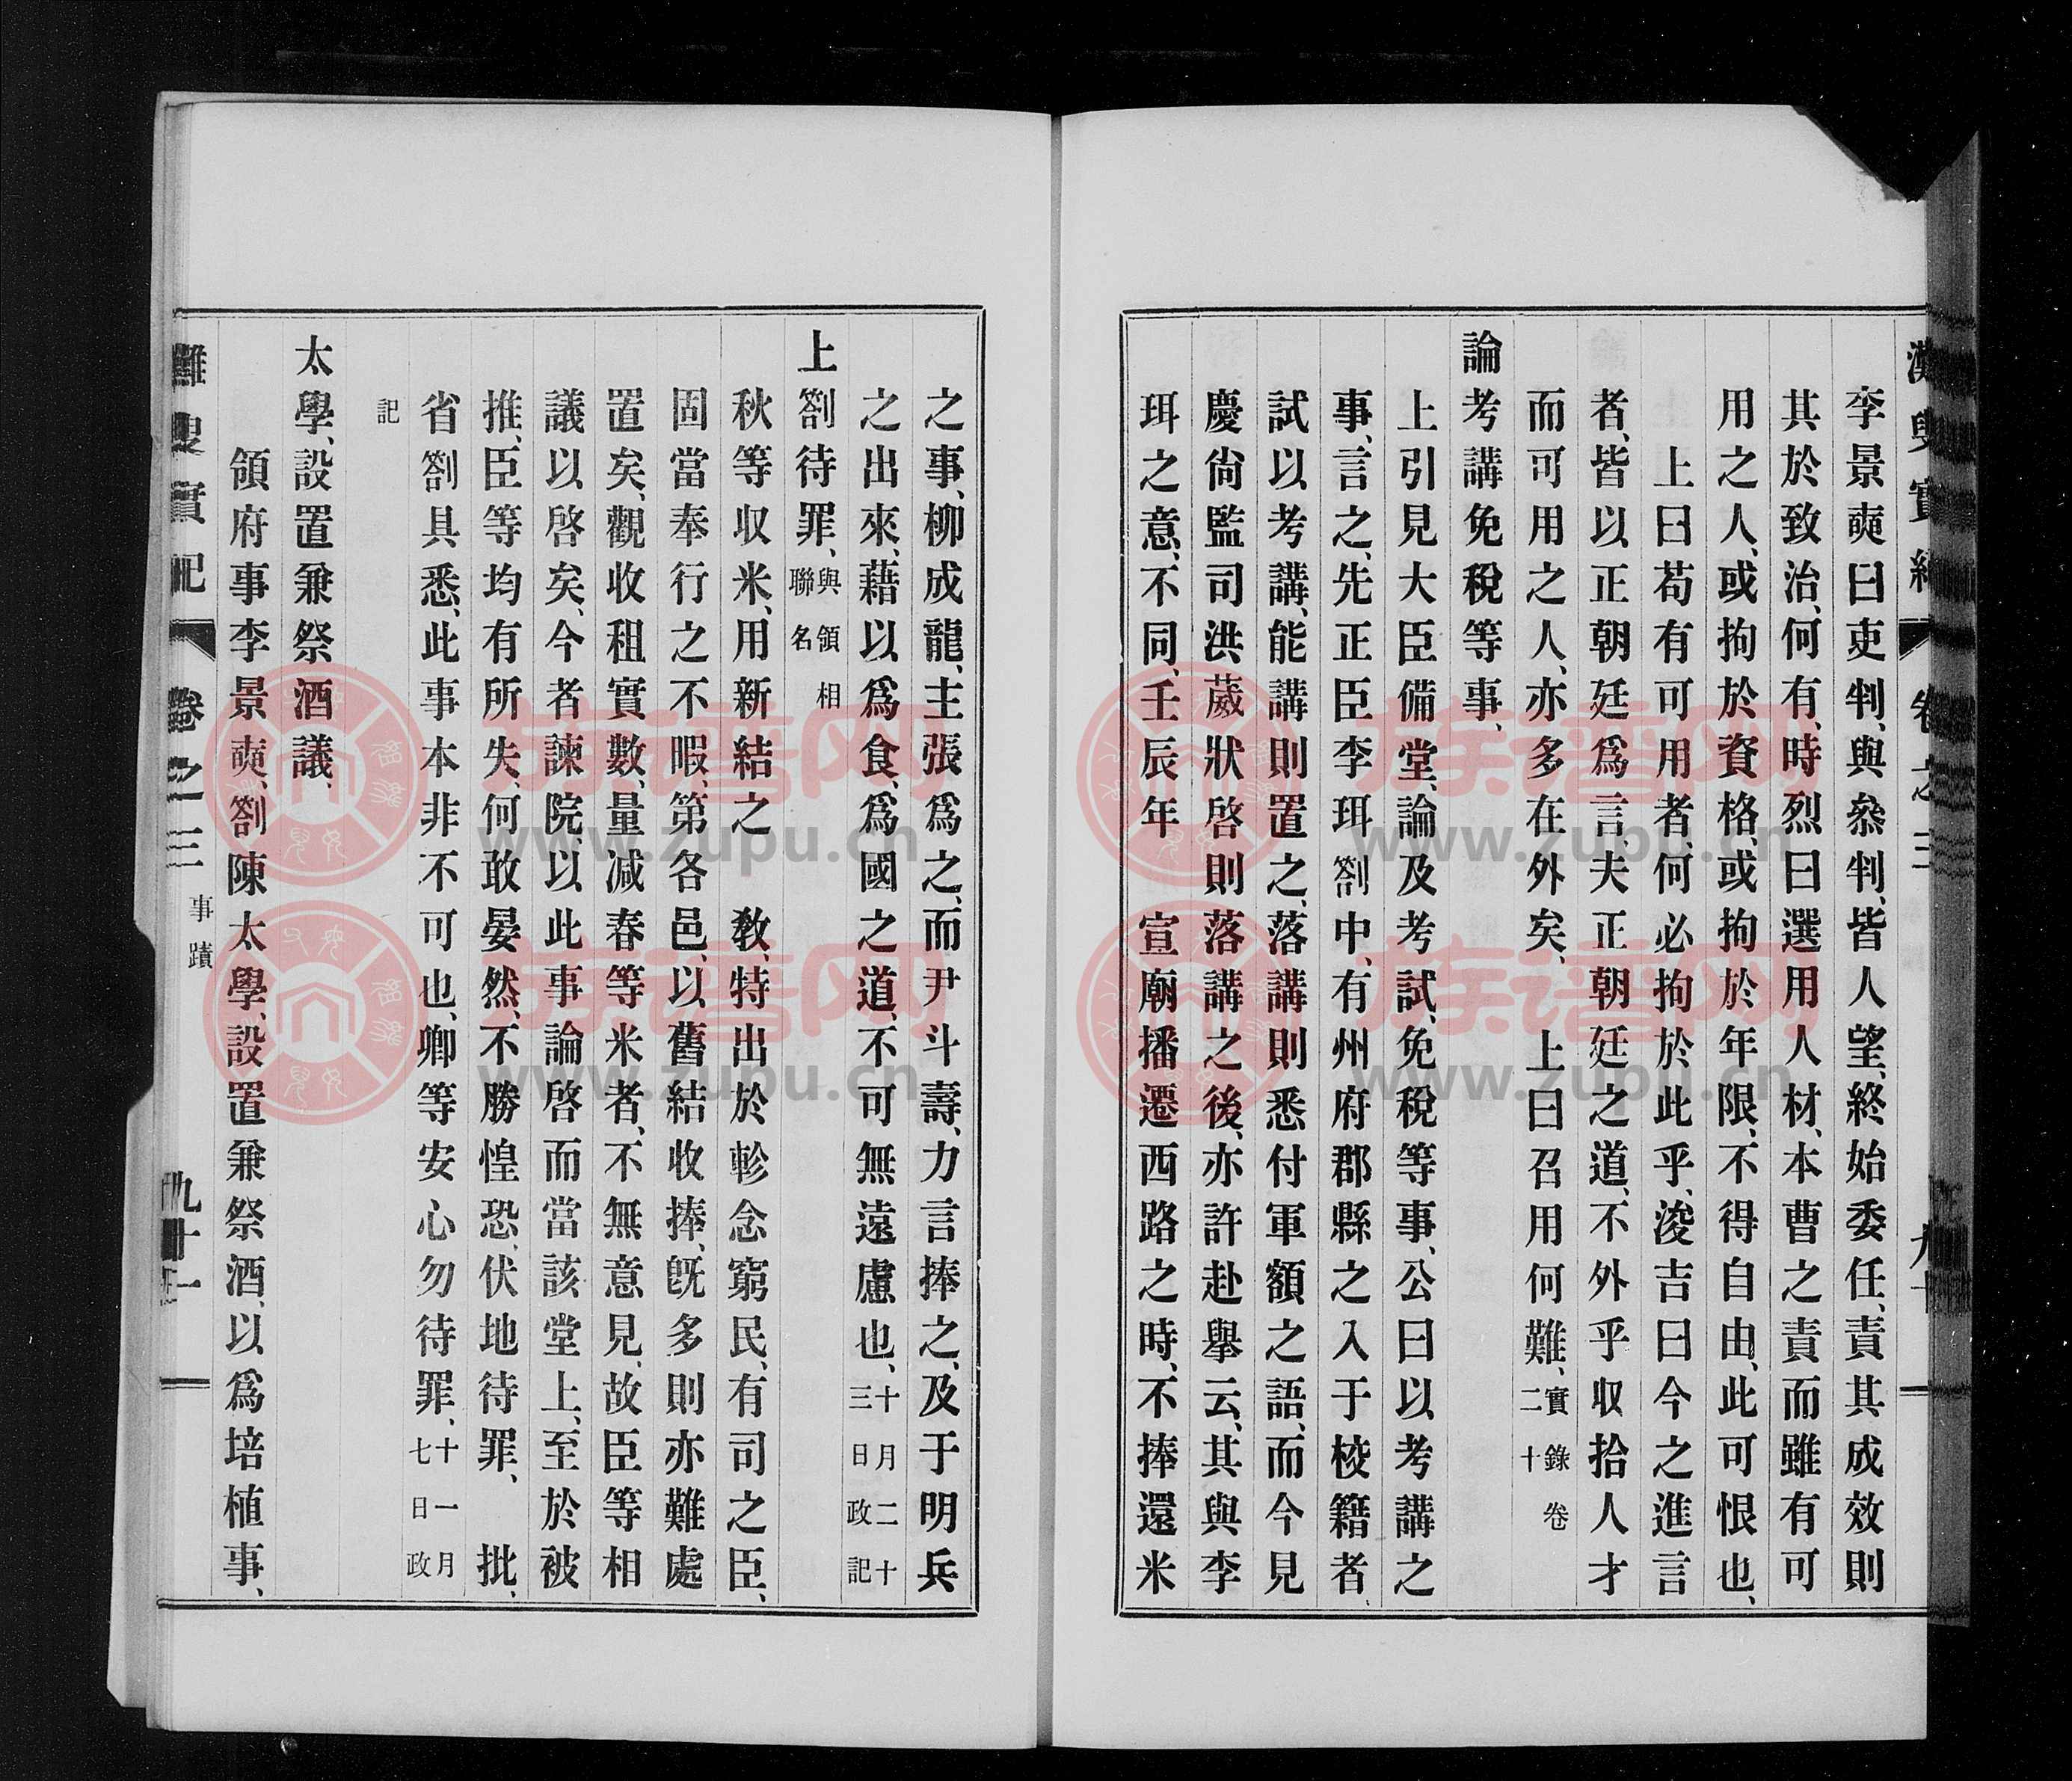 李景奭曰吏判、與叅判、皆人望、終始委任、責其成效則
其於致治、何有、時烈曰選用人材、本曹之責而雖有可
用之人、或拘於資格、或拘於年限、不得自由、此可恨也、
上曰苟有可用者、何必拘於此乎、浚吉曰今之進言
者、皆以正朝廷爲言、夫正朝廷之道、不外乎收拾人才
而可用之人、亦多在外矣、 上曰召用何難、實錄卷二十
論考講免稅等事、
上引見大臣備堂、論及考試、免稅等事、公曰以考講之
事、言之、先正臣李珥劄中、有州府郡縣之入于校籍者
試以考講、能講則置之、落講則悉付軍額之語、而今見
慶尙監司洪葳狀啓則落講之後、亦許赴擧云、其與李
珥之意、不同、壬辰年 宣廟播遷西路之時、不捧還米
之事、柳成龍、主張爲之、而尹斗壽、力言捧之、及于明兵
之出來、藉以爲食、爲國之道、不可無遠慮也、十月二十三日政記
上劄待罪、與領相聯名
秋等收米、用新結之 敎、特出於軫念窮民、有司之臣、
固當奉行之不暇、第各邑、以舊結收捧、旣多則亦難處
置矣、觀收租實數、量减春等米者、不無意見、故臣等相
議以啓矣、今者諫院、以此事論啓而當該堂上、至於被
推、臣等均有所失、何敢晏然、不勝惶恐、伏地待罪、 批、
省劄具悉、此事本非不可也、卿等安心勿待罪、十一月七日政
記
太學、設置兼祭酒議、
領府事李景奭、劄陳太學、設置兼祭酒、以爲培植事、
叟實記 卷之三 事蹟 九十一
www.zupu.cn
族谱网
www.zupu.cn
族谱网
www.zupu.cn
族谱网
www.zupu.cn
族谱网